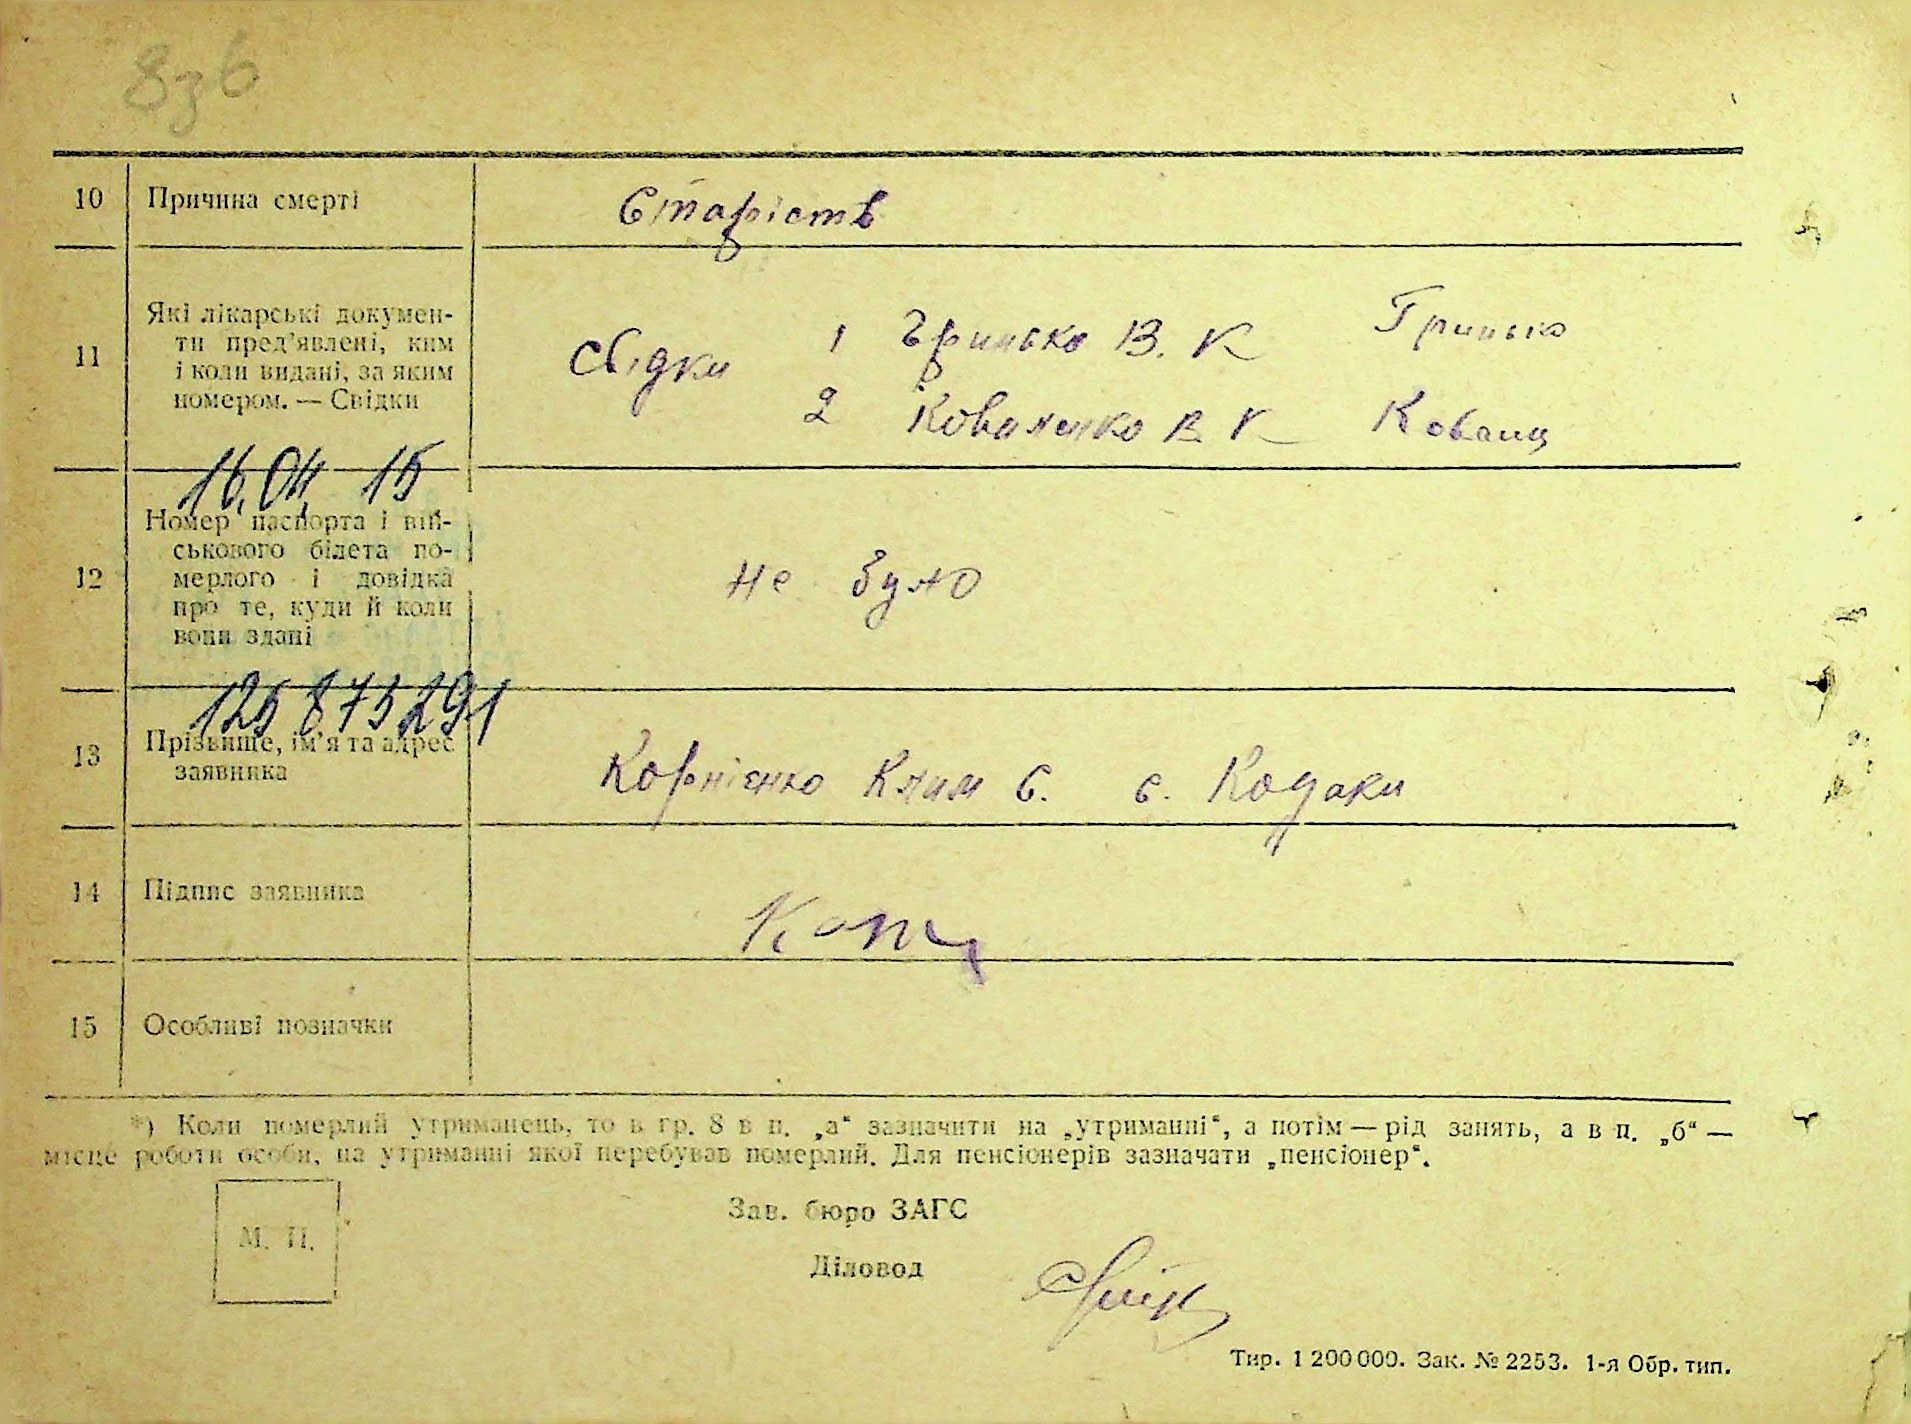 836
10 Причина смерті Старість
11 Які лікарські докумен-
ти пред’явлені, ким
і коли видані, за яким
номером. — Свідки
Свідки 1 Гринько В. К Гринько
2 Коваленко В К Коваль
16.04 15
12 Номер паспорта і вій-
ськового білета по-
мерлого і довідка
про те, куди й коли
вони здані
не було
125 875 291
13 Прізвище, ім’я та адрес
заявника
Корнієнко Клим Є. с. Кодаки
14 Підпис заявника
15 Особливі позначки
*) Коли померлий утриманець, то в гр. 8 в п. „а“ зазначити на „утриманні“, а потім — рід занять, а в п. „б“ —
місце роботи особи, на утриманні якої перебував померлий. Для пенсіонерів зазначати „пенсіонер“.
М. П.
Зав. бюро ЗАГС
Діловод
Тир. 1 200 000. Зак. № 2253. 1-я Обр. тип.